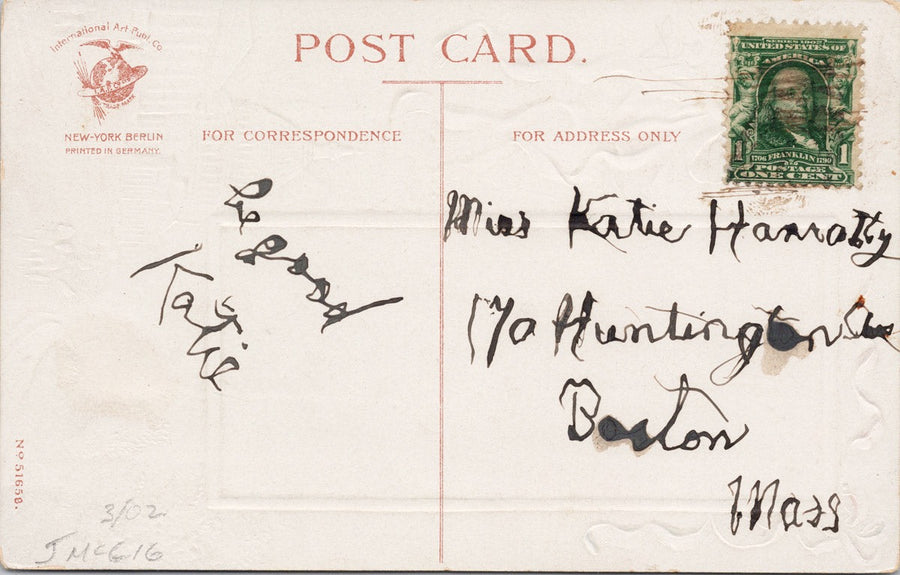 International Art Publ. Co.
NEW-YORK BERLIN
PRINTED IN GERMANY.
POST CARD.
FOR CORRESPONDENCE
FOR ADDRESS ONLY
SERIES 1902
UNITED STATES OF
AMERICA
1706 FRANKLIN 1790
POSTAGE
1 1
ONE CENT
be good
Katie
Miss Katie Hanratty
170 Huntington Ave
Boston
Mass
No 51658.
3/02